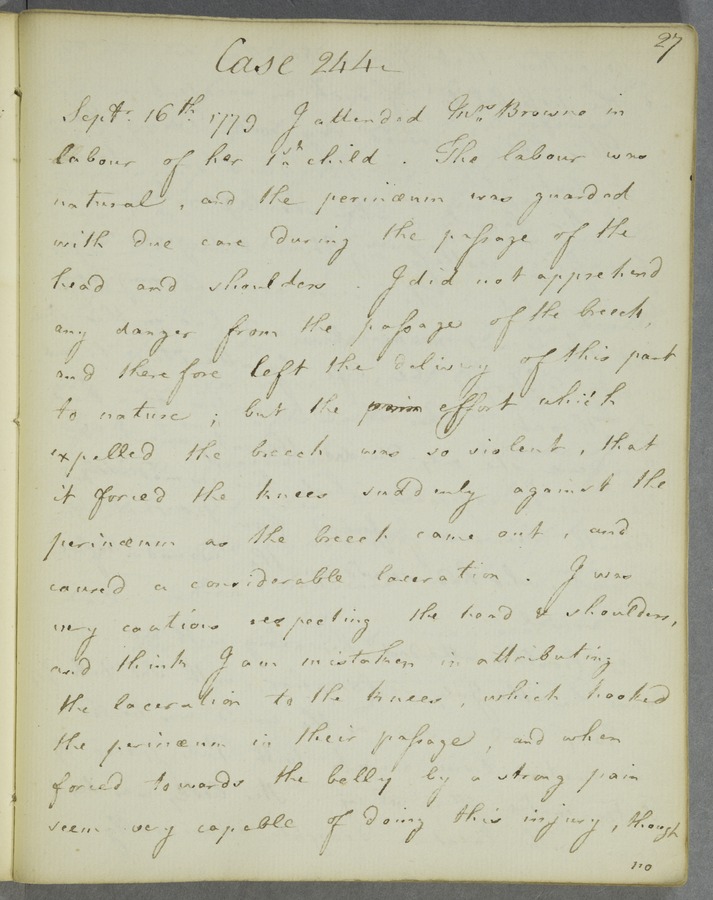 27
Case 244
Septr. 16th. 1779 I attended Mrs. Browne in
labour of her 1st child. The labour was
natural, and the perinæum was guarded
with due care during the passage of the
head and shoulders. I did not apprehend
any danger from the passage of the breech,
and therefore left the delivery of this part
to nature; but the pain effort which
expelled the breech was so violent, that
it forced the knees suddenly against the
perinæum as the breech came out, and
caused a considerable laceration. I was
very cautious respecting the head & shoulders,
and think I am mistaken in attributing
the laceration to the knees, which hooked
the perinæum in their passage, and when
forced towards the belly by a strong pain
seem very capable of doing this injury, though
no